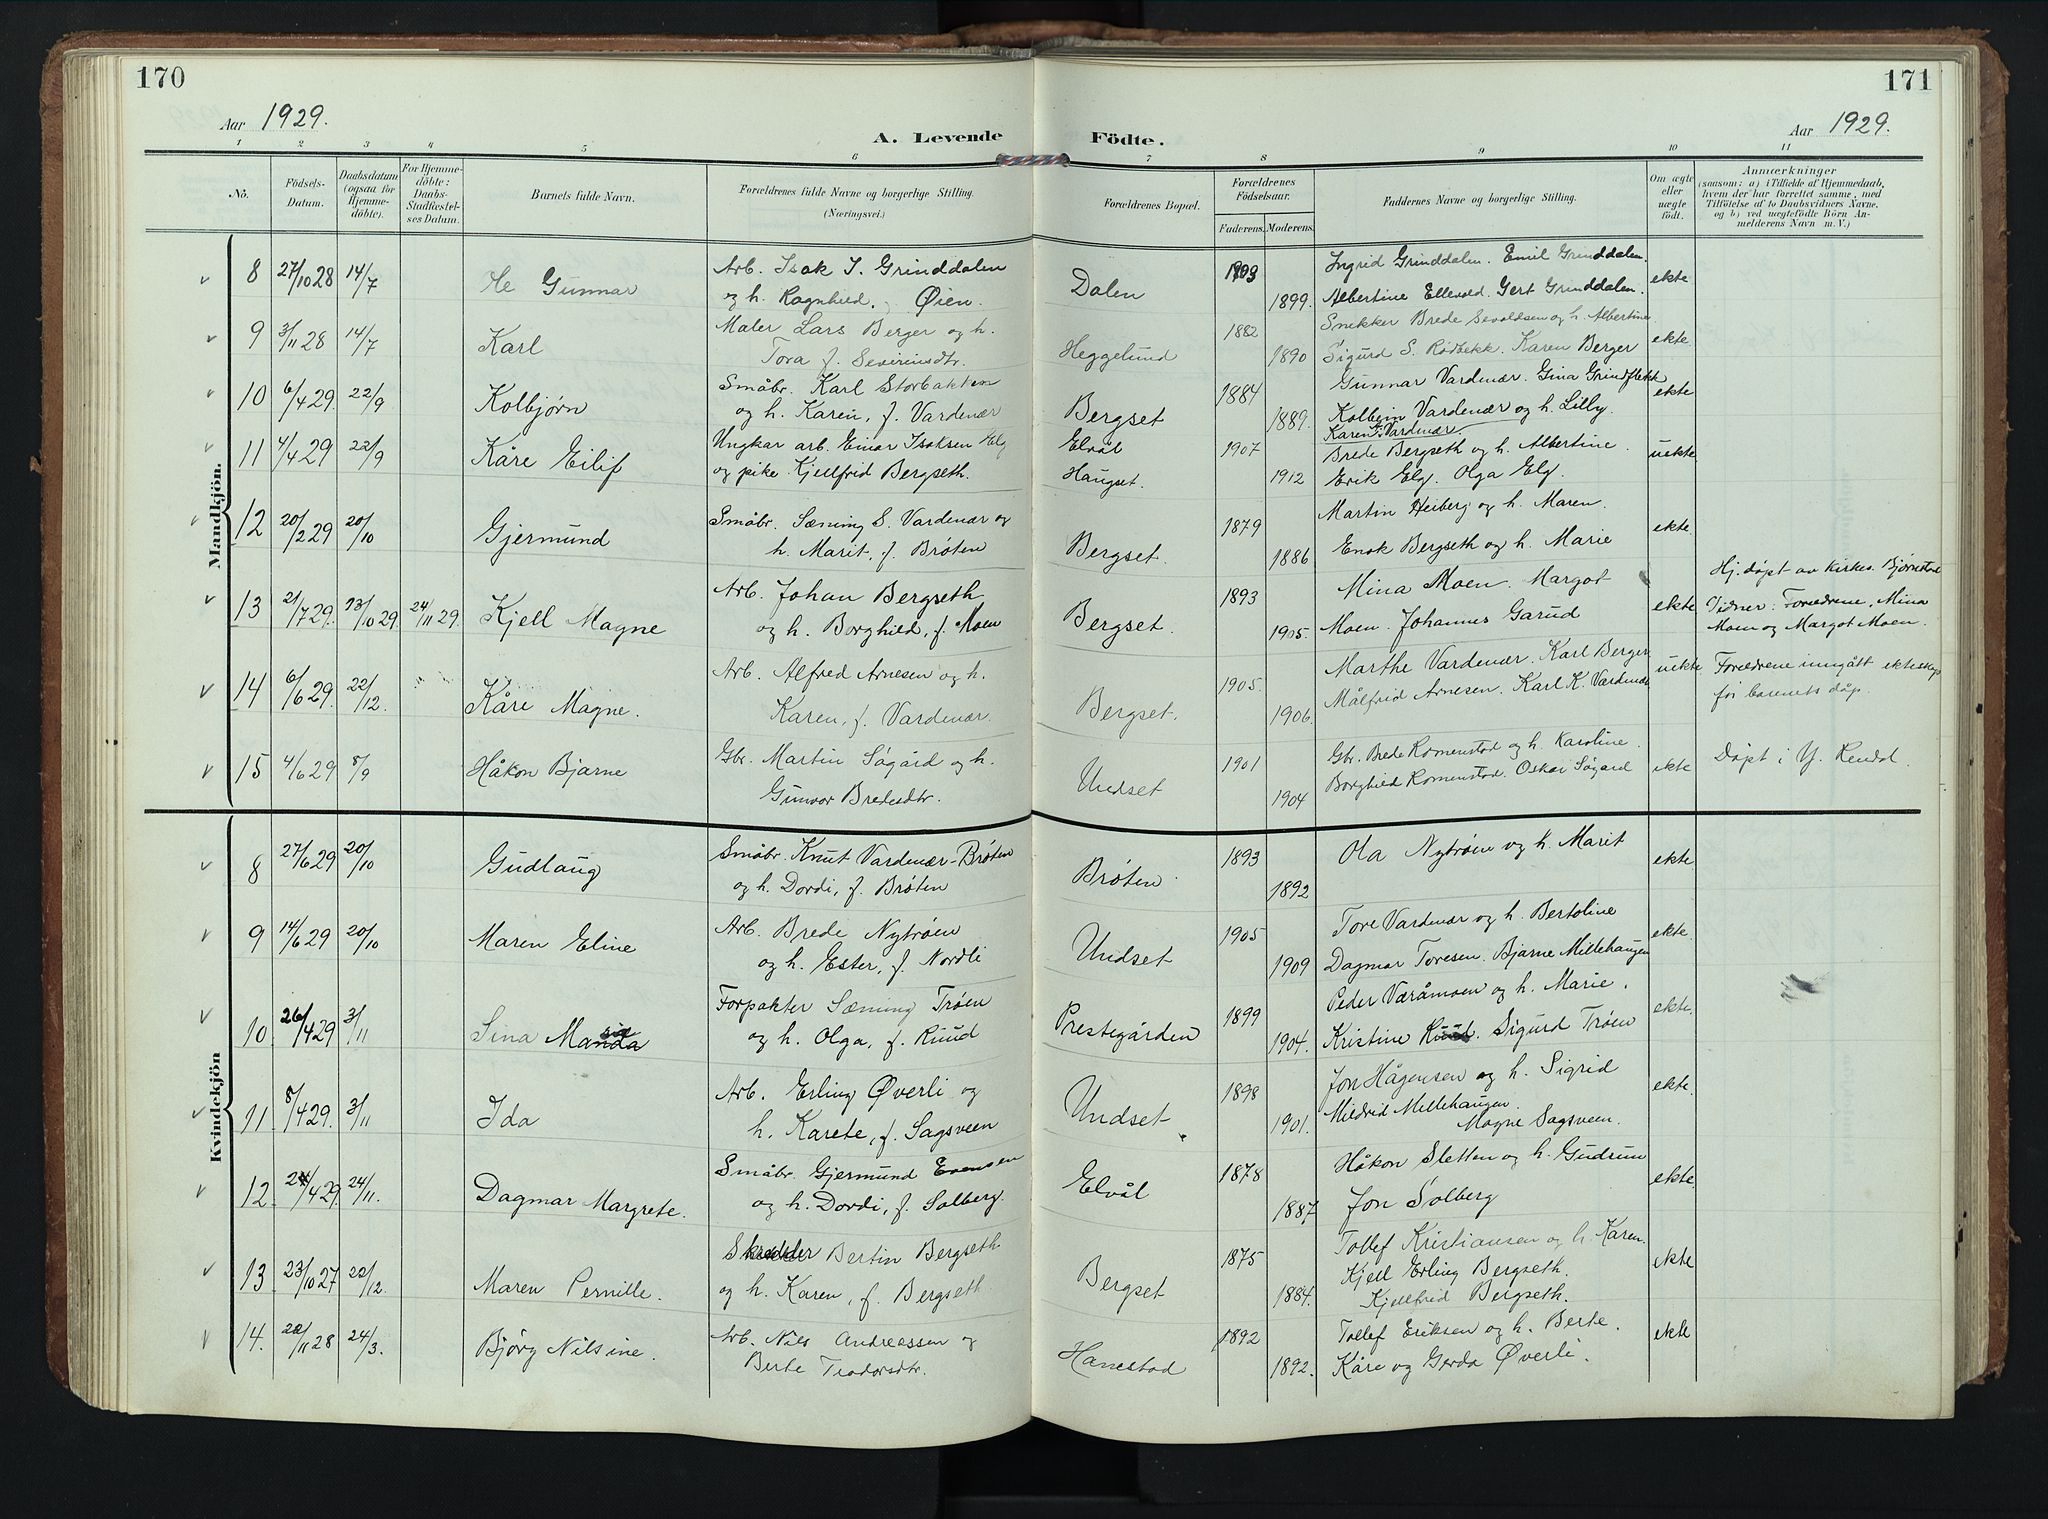 170
171
Aar 1929.
Aar 1929.
A. Levende Födte.
1 2 3 4 5 6 7 8 9 10 11
No.
Födsels-Datum.
Daabsdatum (ogsaa for Hjemmedöbte).
For Hjemmedöbte: Daabs-Stadfæstelses Datum.
Barnets fulde Navn.
Forældrenes fulde Navne og borgerlige Stilling. (Næringsvei.)
Forældrenes Bopæl.
Forældrenes Födselsaar.
Faderens. Moderens.
Faddernes Navne og borgerlige Stilling.
Om ægte eller uægte födt.
Anmærkninger
(saasom: a) i Tilfælde af Hjemmedaab, hvem der har forrettet samme, med Tilföielse af to Daabsvidners Navne, og b) ved uægtefödte Börn Anmelderens Navn m. V.)
Mandkjön.
8 27/10 28 14/7 Gunnar Arb. Isak I. Grinddalen Dalen Ingrid Grinddalen. Emil Grinddalen. ekte
og h. Ragnhild, Øien. 1899. Albertine Ellevold. Gert Grinddalen.
9 3/11 28 14/7 Karl Maler Lars Berger og h. Heggelund 1882 Snekker Brede Sevaldsen og h. Albertine ekte
Tora f. Severinsdtr. 1890 Sigurd S. Rødbekk. Karen Berger
10 6/4 29. 22/9 Kolbjørn Småbr. Karl Storbakken Bergset 1884 Gunnar Vardenær. Gina Grindflekk ekte
og h. Karen, f. Vardenær 1889. Kolbein Vardenær og h. Lilly.
Karen G. Vardenær.
11 4/4 29 22/9 Kåre Eilif Ungkar arb. Einar Isaksen Elg Elvål 1907 Brede Bergseth og h. Albertine. uekte
og pike Kjellfrid Bergseth. Haugset. 1912 Erik Elg. Olga Elg.
12 20/2 29 20/10 Gjermund Småbr. Sæming S. Vardenær og Bergset. 1879 Martin Heiberg og h. Maren. ekte
h. Marit, f. Brøten 1886 Enok Bergseth og h. Marie
13 2/7 29. 13/10 29 24/11 29. Kjell Magne Arb. Johan Bergseth Bergset. 1893 Mina Moen. Margot ekte Hj. døpt av kirkes. Bjørnstad
og h. Borghild, f. Moen 1905. Moen. Johannes Garud Vidner: Foreldrene, Mina
Moen og Margot Moen.
14 6/6 29. 22/12. Kåre Magne. Arb. Alfred Arnesen og h. Bergset. 1905. Marthe Vardenær. Karl Berger uekte Foreldrene inngått ekteskap
Karen, f. Vardenær. 1906. Målfrid Arnesen. Karl K. Vardenær før barnets dåp.
15 4/6 29 8/9 Håkon Bjarne Gbr. Martin Søgård og h. Undset 1901 Gbr. Brede Romenstad og h. Karoline. ekte Døpt i Y. Rendal.
Gunvor Bredesdtr. 1904 Borghild Romenstad. Oskar Søgard
Kvindekjön
8 27/6 29 20/10 Gudlaug Småbr. Knut Vardenær-Brøten Brøten 1893 Ola Nytrøen og h. Marit ekte.
og h. Dordi, f. Brøten 1892
9 14/6 29 20/10 Maren Eline Arb. Brede Nytrøen Undset 1905 Tore Vardenær og h. Bertoline ekte.
og h. Ester, f. Nordli 1909 Dagmar Toresen. Bjarne Millehaugen
10 26/4 29 3/11 Sina Forpakter Sæming Trøen Prestegården 1899 Peder Væråmoen og h. Marie. ekte.
og h. Olga, f. Ruud 1904. Kristine Ruud. Sigurd Trøen
11 8/4 29. 3/11 Ida Arb. Erling Øverli og Undset 1898 Jon Hågensen og h. Sigrid ekte.
h. Karete, f. Sagsveen 1901. Mildrid Millehaugen.
Magne Sagsveen.
12 24/4 29. 24/11. Dagmar Margrete. Småbr. Gjermund Evensen Elvål 1878 Håkon Sletten og h. Gudrun ekte.
og h. Dordi, f. Solberg. 1887 Jon Solberg
13 23/10 27 22/12. Maren Pernille. Skredder Bertin Bergseth Bergset 1875 Tollef Kristiansen og h. Karen. ekte
og h. Karen, f. Bergseth 1884. Kjell Erling Bergseth.
Kjellfrid Bergseth.
14. 22/11 28 24/3. Bjørg Nilsine. Arb. Nils Andreassen og Hanestad 1892 Tollef Eriksen og h. Berte. ekte
Berte Teodorsdtr. 1892. Kåre og Gerda Øverli.